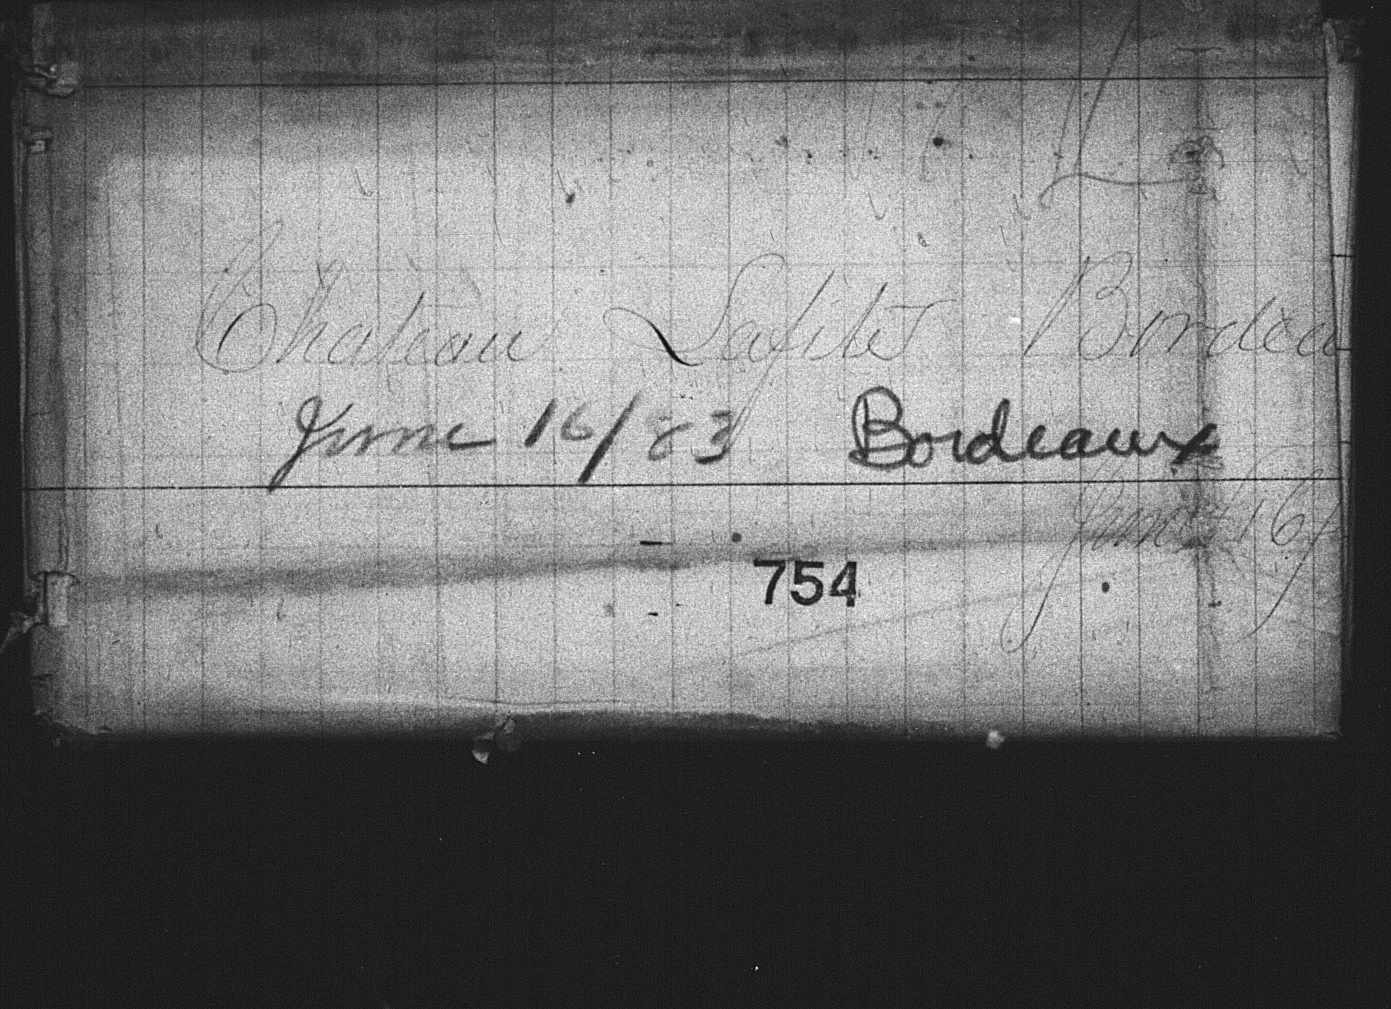 Chateau Lafite Bordea
June 16/83 Bordeaux
June 16/
754